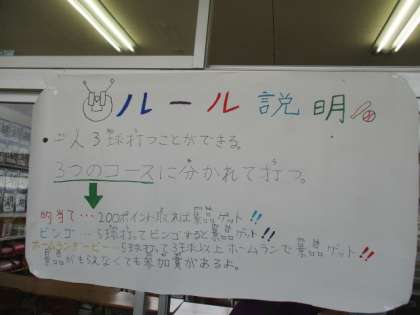 ルール説明
・一人3球打つことができる。
3つのコースに分かれて打つ。
的当て…200ポイント取れば景品ゲット!!
ビンゴ…5球打ってビンゴすると景品ゲット!!
ホームランダービー…5球打って3球以上ホームランで景品ゲット!!
景品がもらえなくても参加賞があるよ。